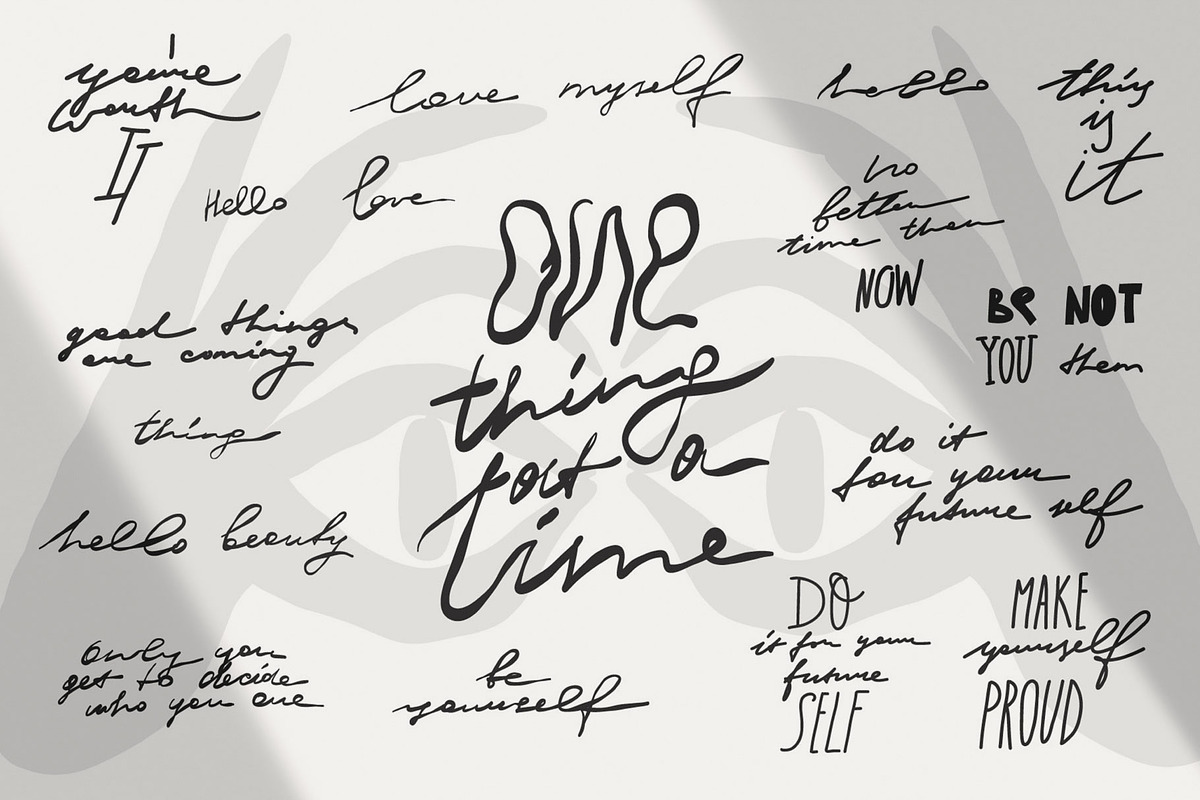 you're
worth
IT
love myself
hello
this
is
it
Hello
love
no
better
time than
NOW
one
thing
at a
time
BE NOT
YOU them
good things
are coming
thing
do it
for your
future self
hello beauty
DO
it for your
future
SELF
MAKE
yourself
PROUD
Only you
get to decide
who you are
be
yourself